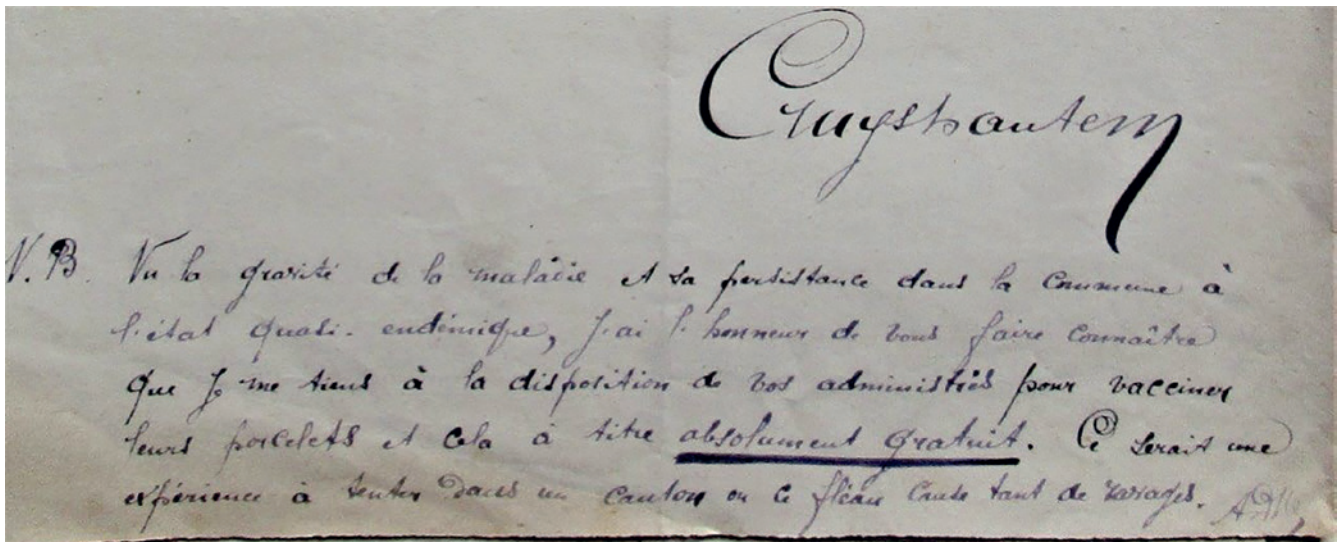 Cruyshautem
N.B. Vu la gravité de la maladie et sa persistance dans la Commune à
l'état quasi-endémique, j'ai l'honneur de vous faire connaître
que je me tiens à la disposition de vos administrés pour vacciner
leurs porcelets et cela à titre absolument gratuit. Ce serait une
expérience à tenter dans un canton ou ce fléau cause tant de ravages.